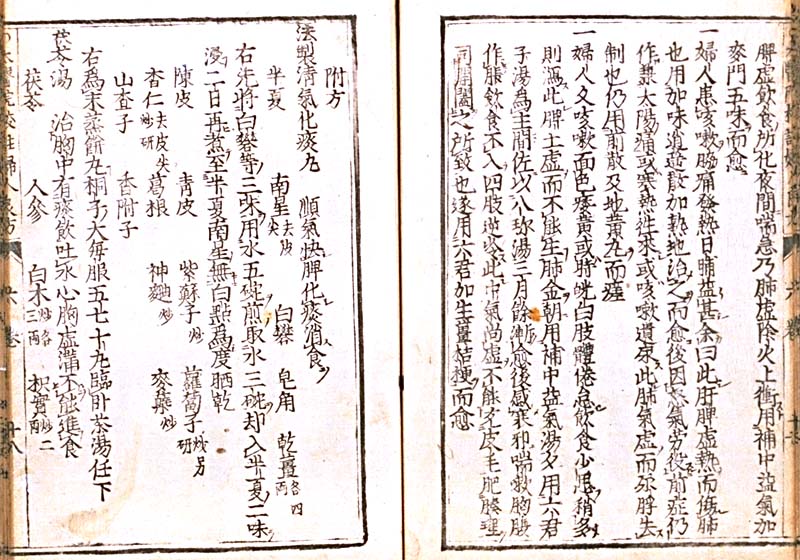 脾虛飲食所化夜間喘急乃肺虛陰火上衝用補中益氣加
麥門五味而愈
一婦人患咳嗽脇痛發熱日晡益甚余曰此肝脾虛熱而傷肺
也用加味逍遙散加熟地治之而愈後因怒氣勞役前症仍
作兼太陽痛或寒熱往來或咳嗽遺尿此肺氣虛而脬失
制也仍用前散及地黃丸而瘥
一婦人久咳嗽面色痿黃或時㿠白肢體倦怠飲食少思稍多
則瀉此脾土虛而不能生肺金朝用補中益氣湯夕用六君
子湯為主間佐以八珍湯三月餘漸愈後感寒邪喘嗽胸腹
作脹飲食不入四肢逆冷此中氣尚虛不能充皮毛肥腠理
司開闔之所致也遂用六君加生薑桔梗而愈
附方
法製清氣化淡丸 順氣快脾化痰消食
半夏 南星去皮尖 白礬 皂角 乾薑各四兩
右先將白礬等三味用水五碗煎取水三碗却入半夏二味
浸二日再煮至半夏南星無白點為度晒乾
陳皮 青皮 紫蘇子炒 蘿蔔子炒另研
杏仁去皮尖炒研 葛根 神麯炒 麥糵炒
山查子 香附子
右為末蒸餅丸桐子大每服五七十丸臨臥茶湯任下
茯苓湯 治胸中有痰飲吐水心胸虛滿不能進食
茯苓 人參 白朮炒各三兩 枳實炒二兩
校註婦人良方 六卷 十八